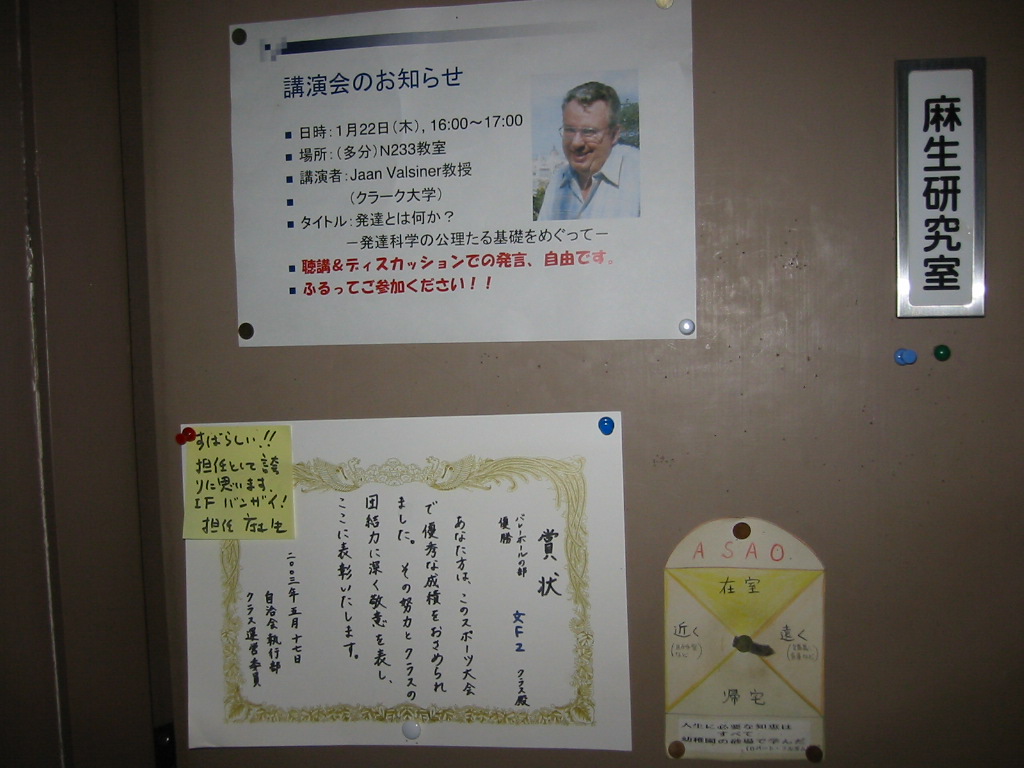 講演会のお知らせ
日時：1月22日（木）, 16:00～17:00
場所：（多分）N233教室
講演者：Jaan Valsiner教授
（クラーク大学）
タイトル：発達とは何か？
－発達科学の公理たる基礎をめぐって－
聴講&ディスカッションでの発言、自由です。
ふるってご参加ください！！
麻生研究室
すばらしい!!
担任として誇
りに思います。
IF バンザイ!
担任 麻生
賞状
バレーボールの部
優勝
文F2 クラス殿
あなた方は、このスポーツ大会
で優秀な成績をおさめられ
ました。その努力とクラスの
団結力に深く敬意を表し、
ここに表彰いたします。
二〇〇三年五月十七日
自治会執行部
クラス運営委員
ASAO
在室
近く
遠く
帰宅
人生に必要な知恵は
すべて
幼稚園の砂場で学んだ